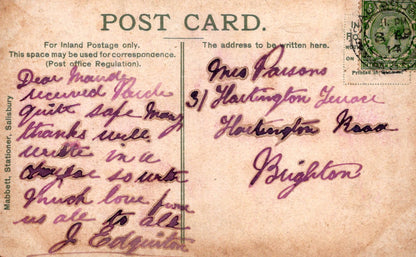 POST CARD.
For Inland Postage only.
This space may be used for correspondence.
(Post office Regulation).
The address to be written here.
Mabbett, Stationer, Salisbury
Dear Maude
received
quite safe Many
thanks will
write in a
so with
Much love from
us all to all
J Edginton
Mrs Parsons
31 Hartington Terrace
Hartington Road
Brighton